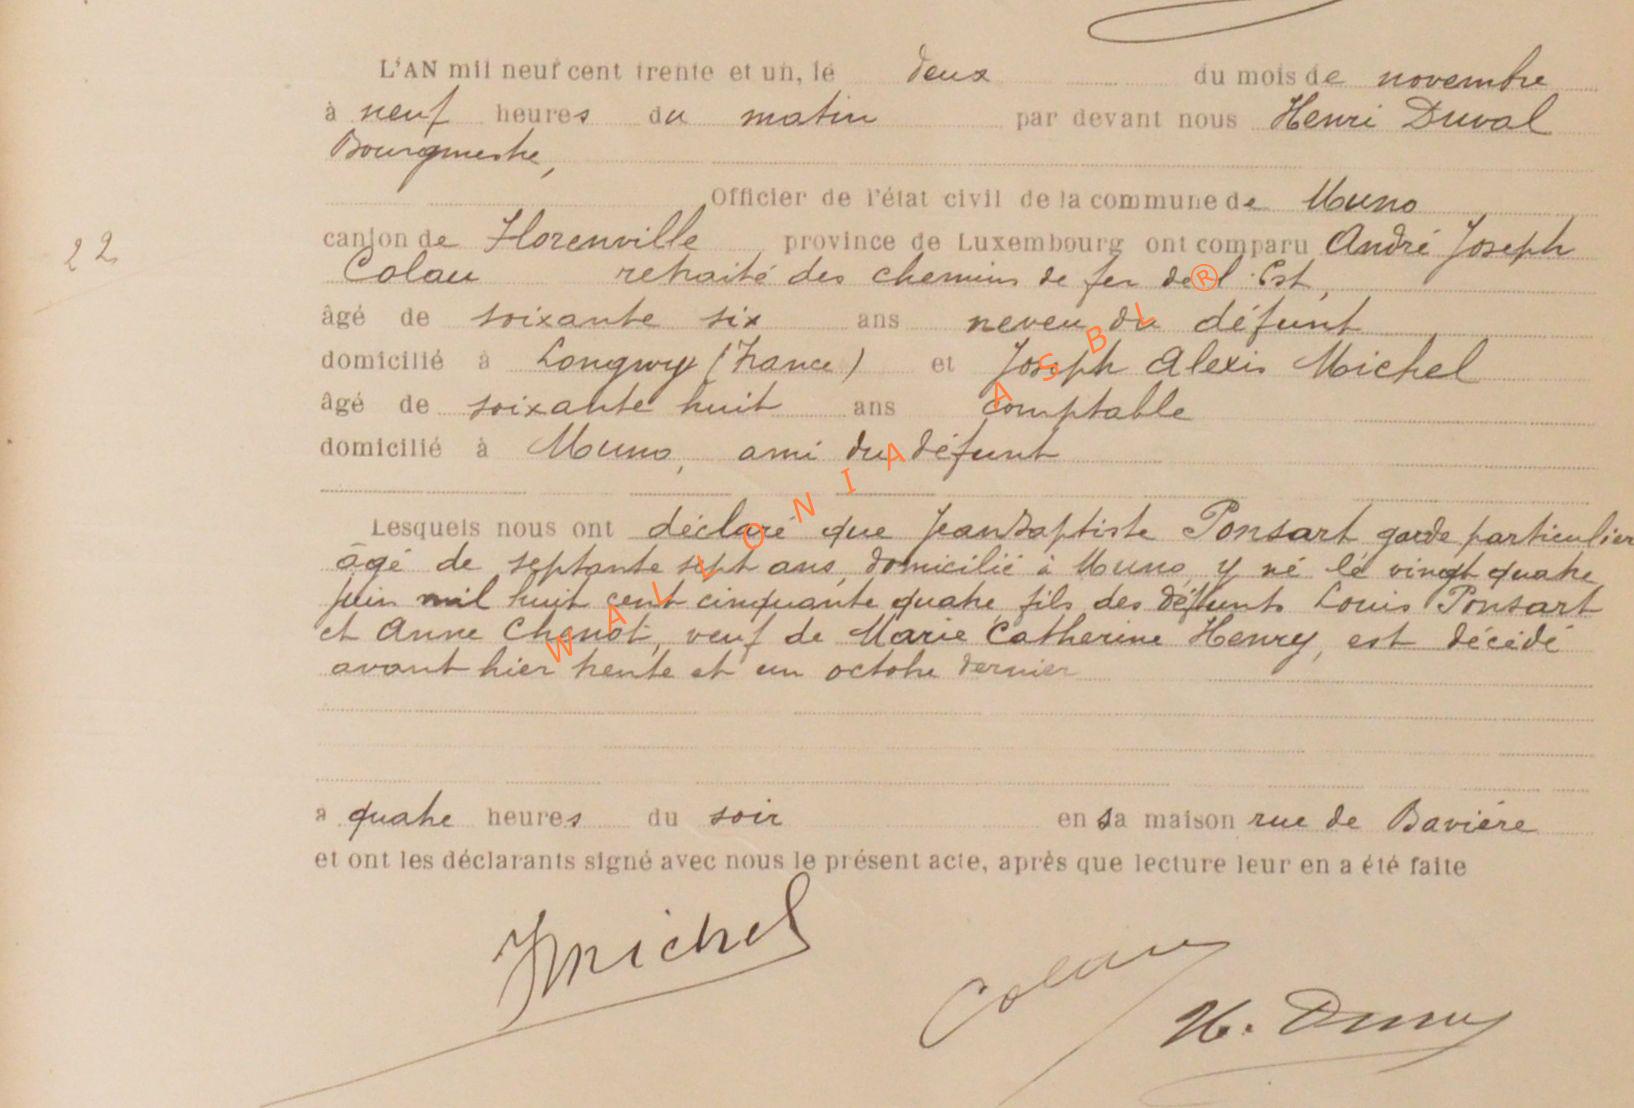 L'AN mil neuf cent trente et un, le deux du mois de novembre
à neuf heures du matin par devant nous Henri Duval
Bourgmestre,
Officier de l'état civil de la commune de Muno
22
canton de Florenville province de Luxembourg ont comparu André Joseph
Colau retraité des chemins de fer de l'Est,
âgé de soixante six ans neveu du défunt
domicilié à Longwy (France) et Joseph Alexis Michel
âgé de soixante huit ans comptable
domicilié à Muno, ami du défunt
Lesquels nous ont déclaré que Jean Baptiste Ponsart garde particulier
âgé de septante sept ans, domicilié à Muno, y né le vingt quatre
juin mil huit cent cinquante quatre, fils des défunts Louis Ponsart
et Anne Chenot, veuf de Marie Catherine Henry, est décédé
avant hier trente et un octobre dernier
a quatre heures du soir en sa maison rue de Bavière
et ont les déclarants signé avec nous le présent acte, après que lecture leur en a été faite
JMichel
Colau
H. Duval
WALLONIA ASBL ®